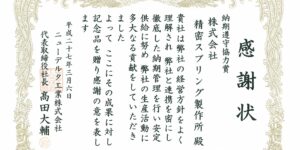 感謝状
納期遵守協力賞
株式会社
精密スプリング製作所 殿
貴社は弊社の経営方針をよく
理解され 弊社と連携を密にし
徹底した納期管理を行い安定
供給に努め 弊社の生産活動に
多大なる貢献をしていただき
ました
よって ここにその成果に対し
記念品を贈り感謝の意を表し
ます
平成二十七年三月六日
ニューデルタ工業株式会社
代表取締役社長 高田大輔